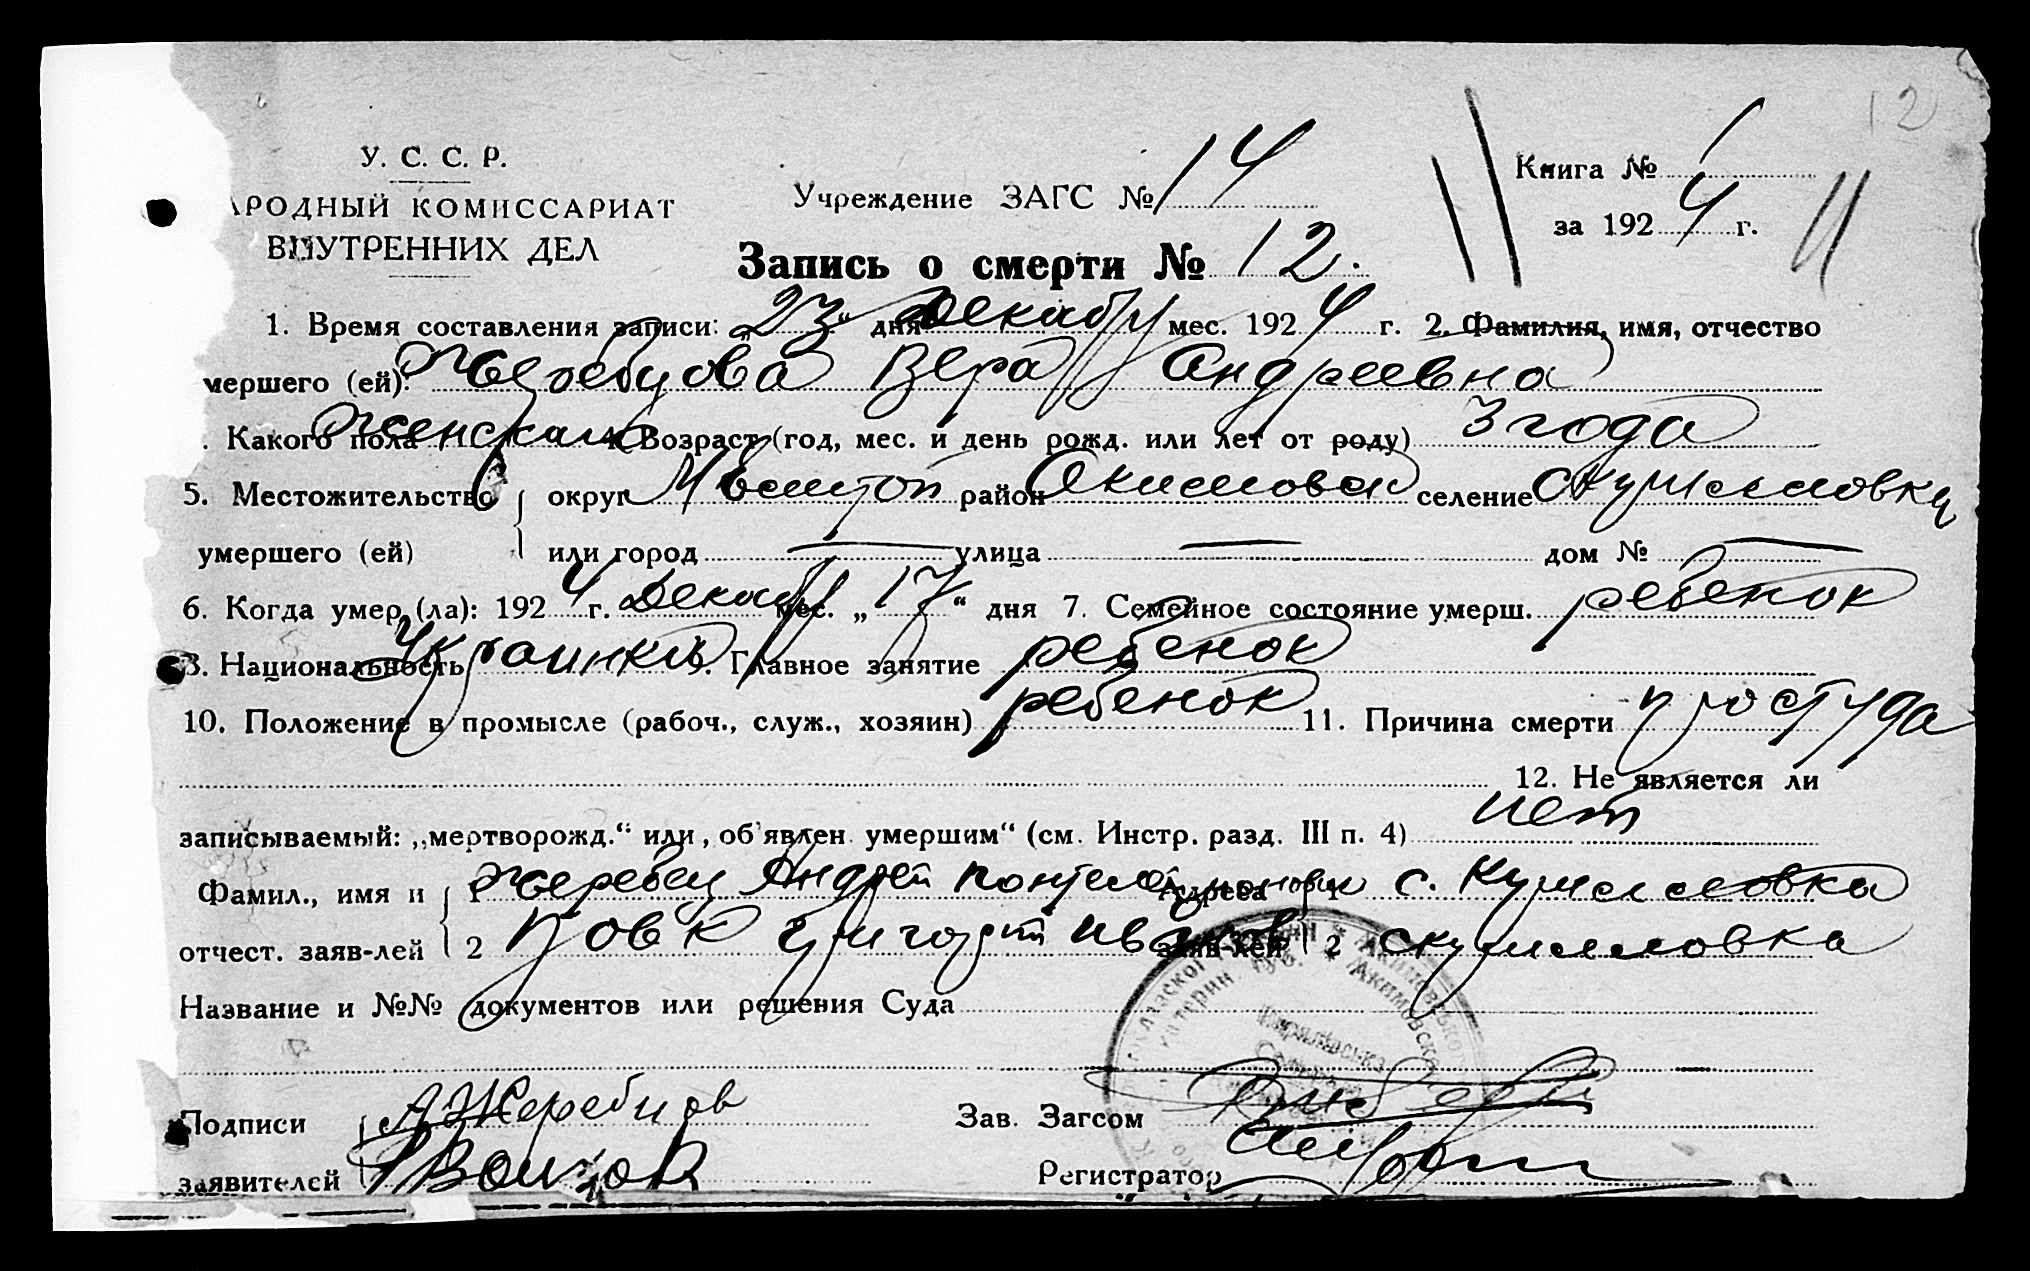 12
У. С. С. Р.
РОДНЫЙ КОМИССАРИАТ
ВНУТРЕННИХ ДЕЛ
Учреждение ЗАГС № 14
Книга № 1
за 1924 г.
Запись о смерти № 12.
1. Время составления записи: „23“ дня декабр мес. 1924 г. 2. Фамилия, имя, отчество
мершего (ей): Жеребцова Вера Андреевна
. Какого пола женскаго 4. Возраст (год, мес. и день рожд. или лет от роду) 3 года
5. Местожительство округ Мелитоп район Акимовск селение
умершего (ей) или город — улица — дом № —
6. Когда умер (ла): 1924 г. Декабр мес. „17“ дня 7. Семейное состояние умерш. ребенок
8. Национальность Украинка 9. Главное занятие ребенок
10. Положение в промысле (рабоч., служ., хозяин) ребенок 11. Причина смерти простуда
12. Не является ли
записываемый: „мертворожд.“ или „об'явлен умершим“ (см. Инстр. разд. III п. 4) нет
Фамил., имя и 1 Андрей Адреса 1 с.
отчест. заяв-лей 2 заяв-лей 2
Название и №№ документов или решения Суда
Подписи А Жеребцов Зав. Загсом
заявителей Регистратор